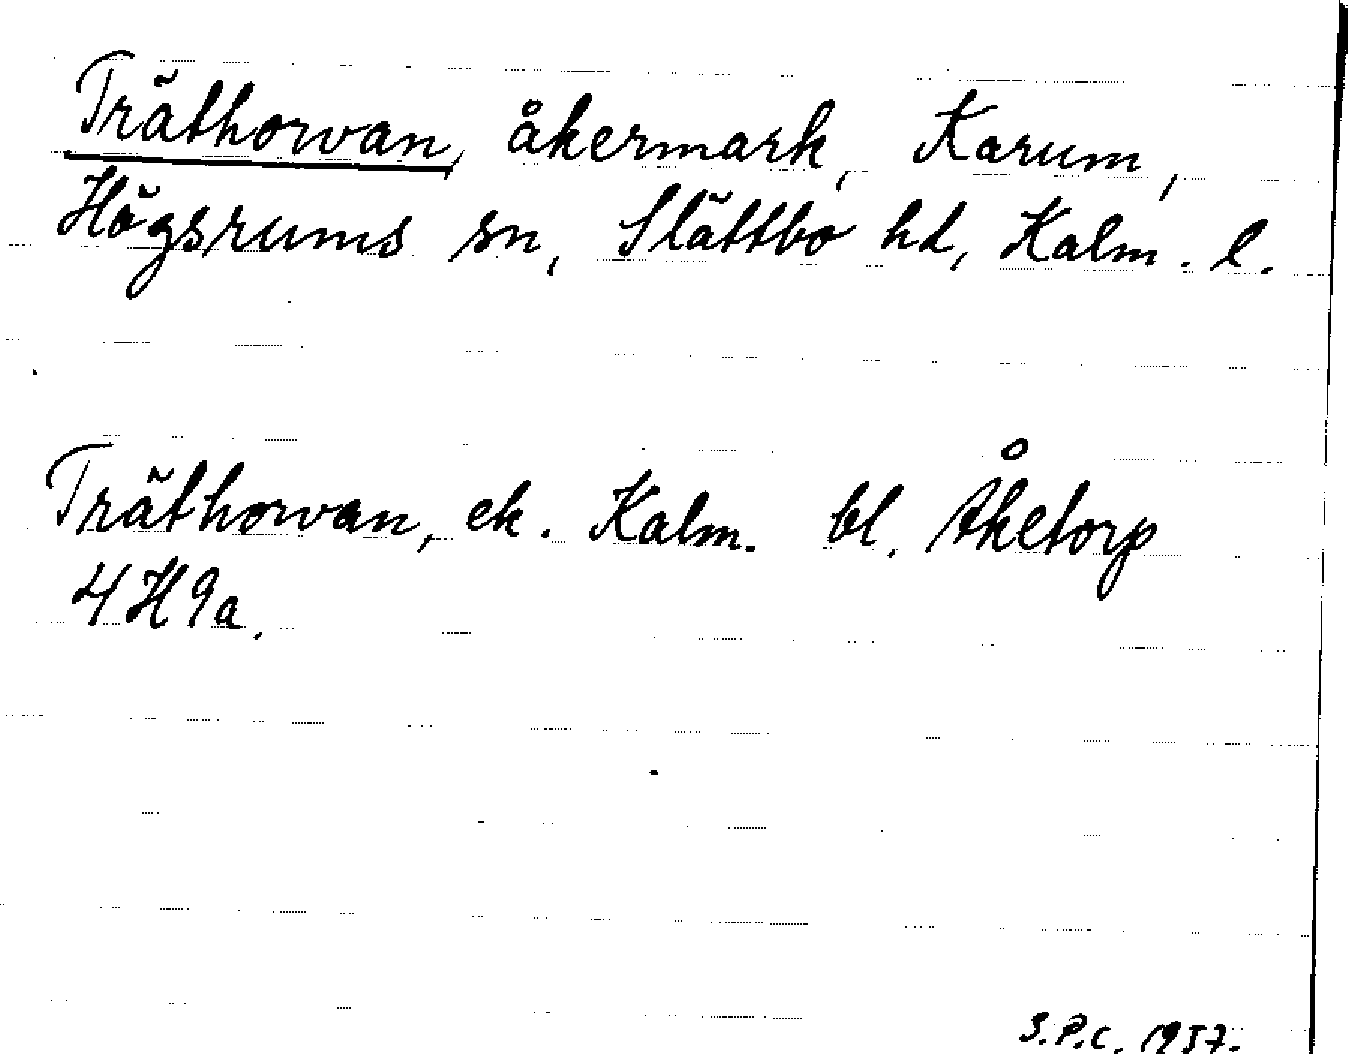 Träthorvan, åkermark, Karum,
Högsrums sn, Slättbo hd, Kalm. l.
Träthorvan, ek. Kalm. bl. Åketorp
4H9a.
S.P.C. 1957.